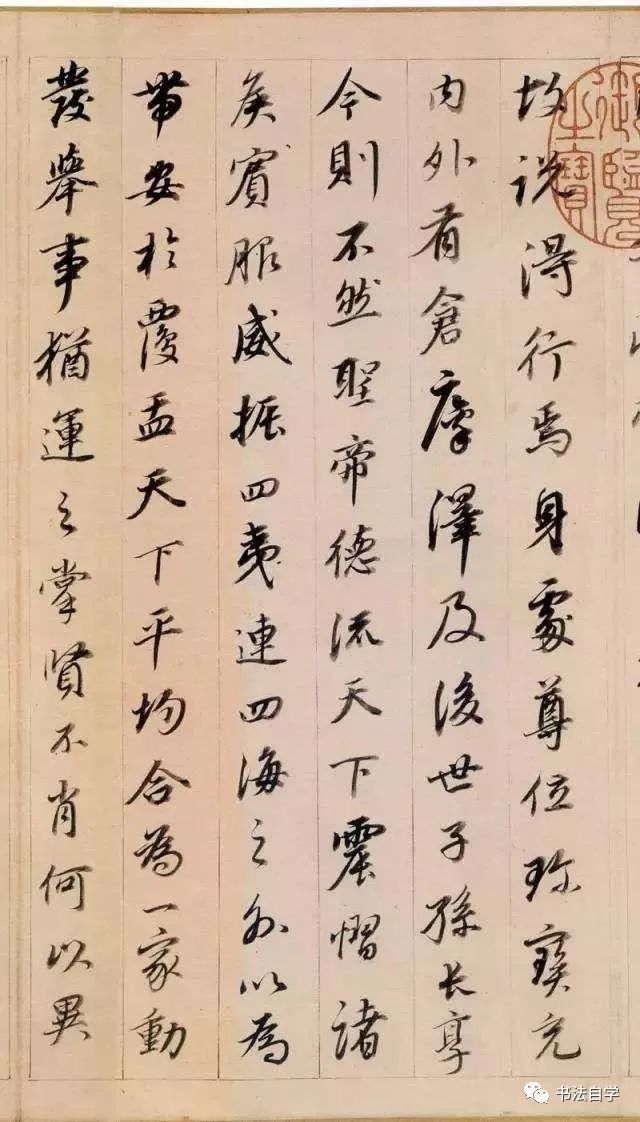 御覽之寶
故説得行焉身處尊位珍寶充
内外有倉廩澤及後世子孫長享
今則不然聖帝德流天下震慴諸
侯賓服威振四夷連四海之外以為
帶安於覆盂天下平均合為一家動
發舉事猶運之掌賢不肖何以異
书法自学